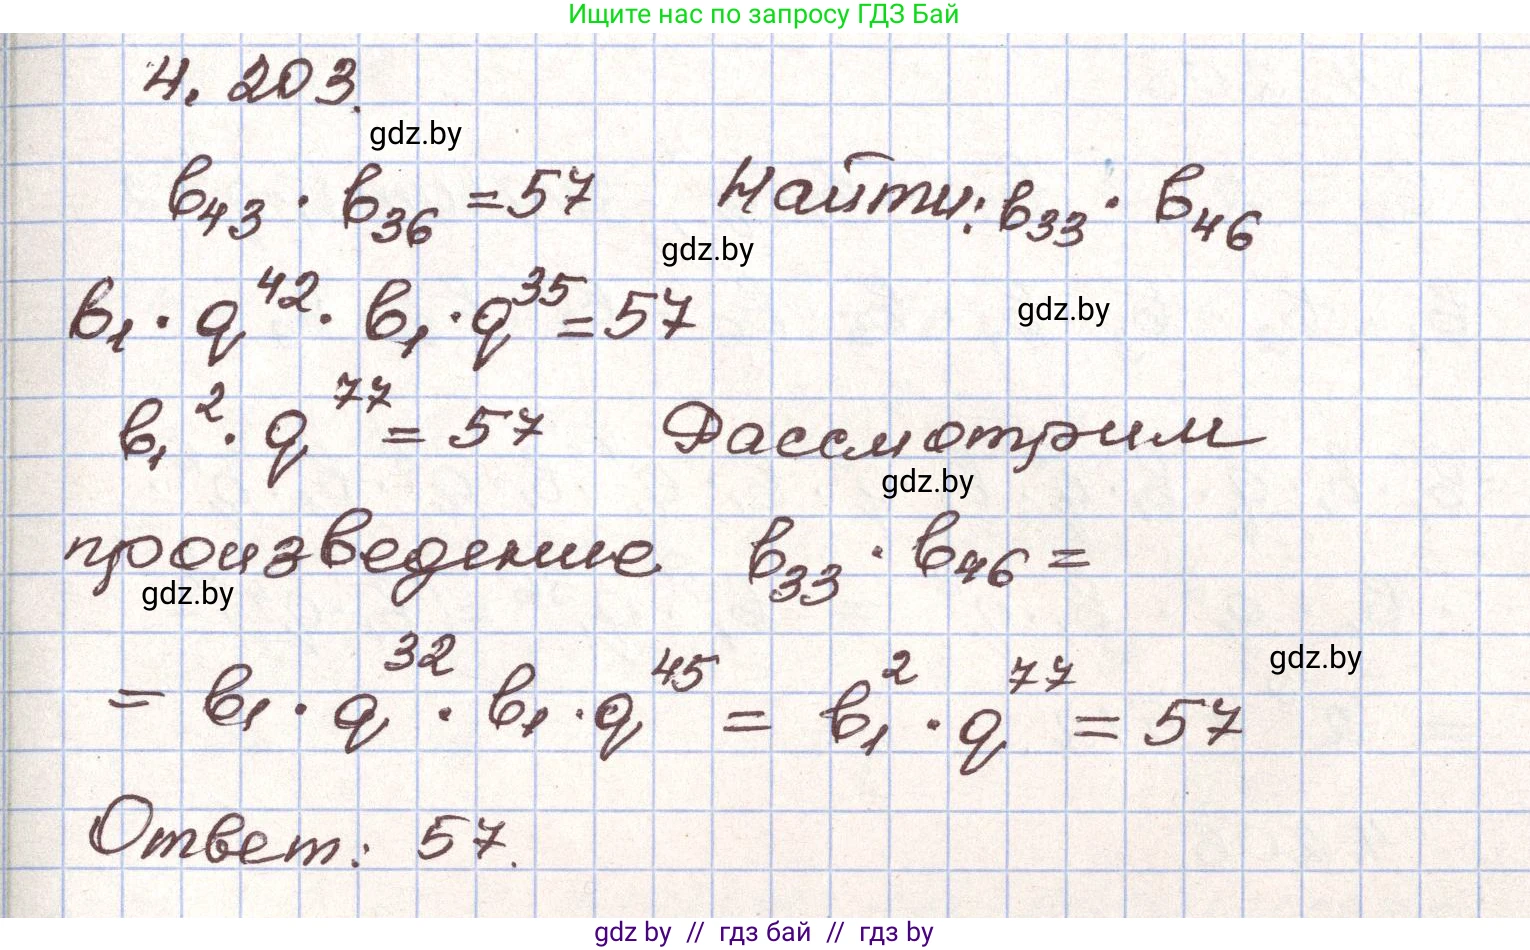 Ищите нас по запросу ГДЗ Бай
4. 203.
gdz.by
b₄₃ · b₃₆ = 57 Найти: b₃₃ · b₄₆
gdz.by
b₁ · q⁴² · b₁ · q³⁵ = 57
gdz.by
b₁² · q⁷⁷ = 57 Рассмотрим
gdz.by
произведение b₃₃ · b₄₆ =
gdz.by
= b₁ · q³² · b₁ · q⁴⁵ = b₁² · q⁷⁷ = 57
gdz.by
Ответ: 57.
gdz by // гдз бай // гдз by